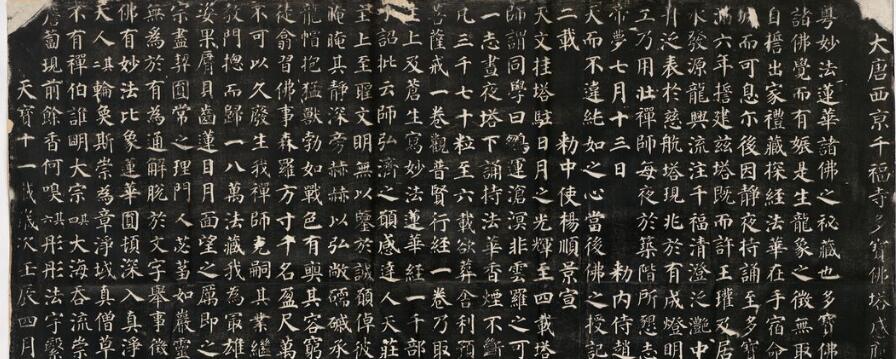 大唐西京千福寺多寶佛塔感應
粤妙法蓮華諸佛之秘藏也多寶佛
諸佛覺而有娠是生龍象之徵無取
自誓出家禮藏探經法華在手宿命
城而可息尔後因靜夜持誦至多寶
滿六年誓建茲塔既而許王瓘及居
水發源龍興流注千福清澄泛灔中
引泛表於慈航塔現兆於有成燈明
工乃用壯禪師每夜於築階所懇志
帝夢七月十三日 勑內侍趙
天而不違純如之心當後佛之授記
二載 勑中使楊順景宣
天文挂塔駐日月之光輝至四載塔
師謂同學曰鵬運滄溟非雲羅之可
一志晝夜塔下誦持法華香煙不斷
凡三千七十粒至六載欲葬舍利預
菩薩戒一卷觀普賢行經一卷乃取
主上及蒼生寫妙法蓮華經一千部
手詔批云師弘濟之願感達人天莊
主上至聖文明無以鑒於誠願倬彼
晻晻其靜深旁赫赫以弘敞礝碱承
龍帽抱猛獸勃如戰色有奭其容窮
徒僉習佛事森羅方寸千名盈尺萬
不可以久廢生我禪師克嗣其業繼
教門揔而歸一八萬法藏我為最雄
姿果脣貝齒蓮目月面望之厲即之
宗盡契圓常之理門人苾芻如巖靈
無為於有為通解脫於文字舉事徵
佛有妙法比象蓮華圓頓深入真淨
大人其輪奐斯崇為章淨域真僧草
不有禪伯誰明大宗其大海吞流崇
薝蔔現前餘香何嗅其彤彤法宇繫
天寶十一載歲次壬辰四月